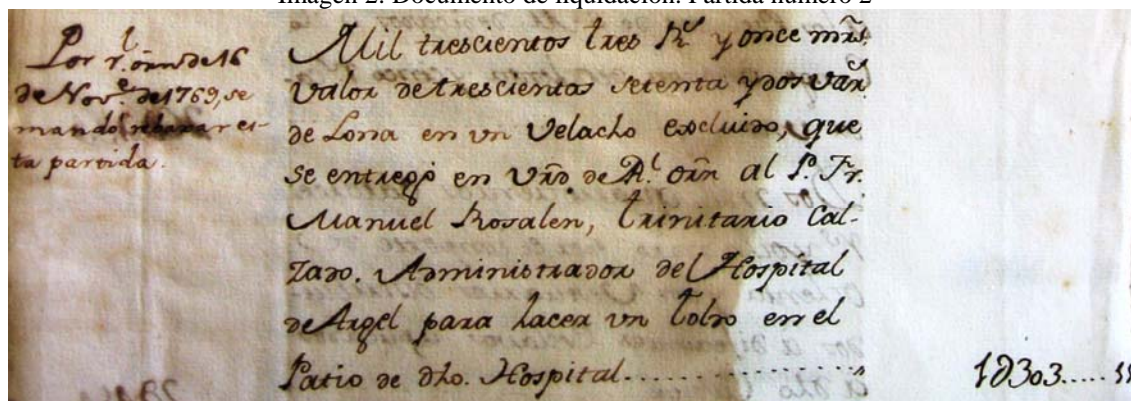 Imagen 2. Documento de liquidación. Partida número 2
Por r.l orn de 16
de Nov.e de 1769, se
mandó rebaxar es-
ta partida.
Mil trescientos tres R.s y once mrs.
valor de trescientas setenta y dos var.s
de Lona en vn Velacho excluido, que
se entregó en Vrd de R.l orn al P. Fr.
Manuel Rosalen, Trinitario Cal-
zado. Administrador del Hospital
de Argel para hacer vn Toldo en el
Patio de dho. Hospital..............
1D303.....11